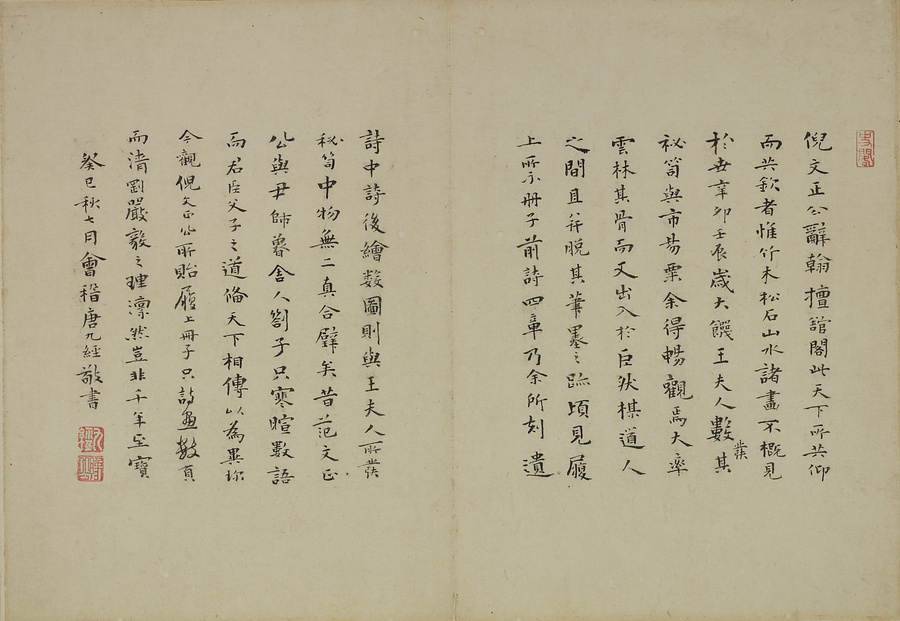 倪文正公辭翰擅舘閣此天下所共仰
而共欽者惟竹木松石山水諸畫不概見
於世辛卯壬辰歲大饑王夫人數其
發
祕笥與市易粟余得暢觀焉大率
雲林其骨而又出入於巨狀楳道人
之間且并脫其筆墨之跡頃見履
上所示冊子前詩四章乃余所刻遺
詩中詩後繪數圖則與王夫人所發
秘笥中物無二真合璧矣昔范文正
公與尹師魯舍人劄子只寒暄數語
而君臣父子之道俻天下相傳以為異珍
今觀倪文正公所貽履上冊子只詩畫數頁
而清剛嚴毅之理凛然豈非千年至寶
癸巳秋七月會稽唐九經敬書